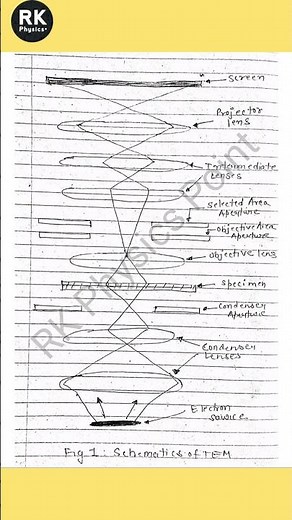 RK
Physics
Screen
Projector
lens
Intermediate
Lenses
Selected Area
Aperture
Objective Area
Aperture
Objective lens
Specimen
Condenser
Aperture
Condenser
Lenses
Electron
source
Fig 1: Schematics of TEM
RK Physics Point